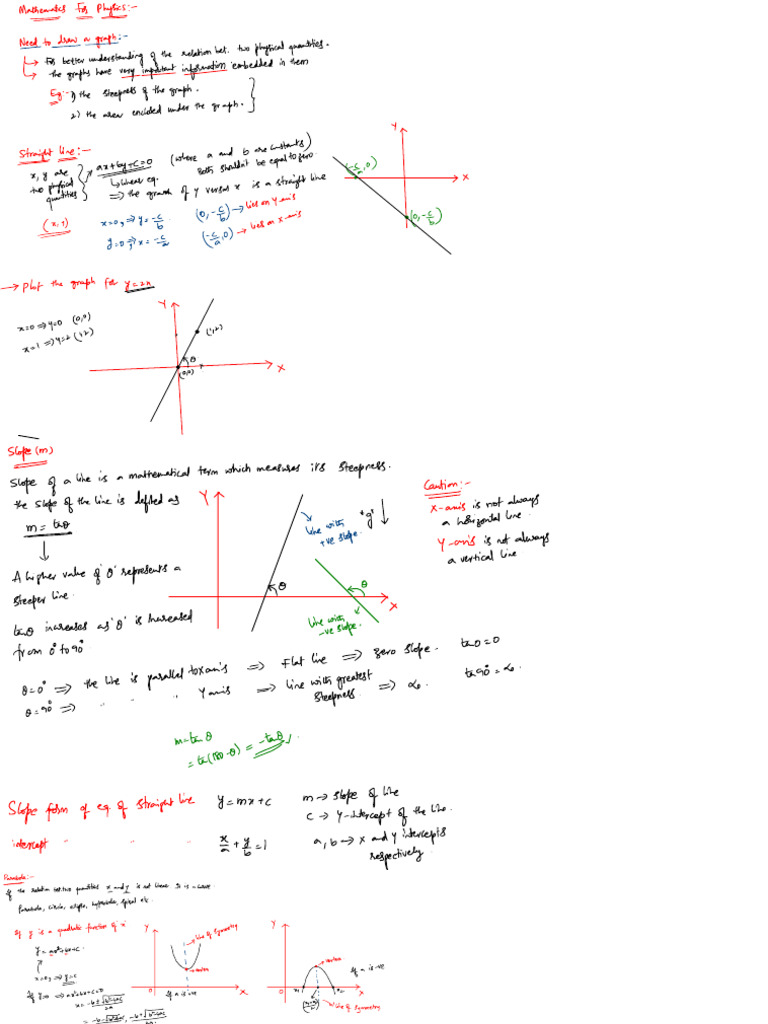 Mathematics For Physics:-
Need to draw a graph:-
→ For better understanding of the relation bet. two physical quantities.
→ the graphs have very important information embedded in them
Eg:- 1) the steepness of the graph.
2) the area enclosed under the graph.
Straight line:-
x, y are two physical quantities
ax+by+c=0 (where a and b are constants
Both shouldn't be equal to zero.
↳ linear eq.
⇒ the graph of y versus x is a straight line
(x, y)
x=0, ⇒ y = -c/b
(0, -c/b) → lies on Y-axis
y=0, ⇒ x = -c/a
(-c/a, 0) → lies on x-axis
Y
(-c/a, 0)
X
(0, -c/b)
→ Plot the graph for y=2x
x=0 ⇒ y=0 (0,0)
x=1 ⇒ y=2 (1,2)
Y
(1,2)
θ
(0,0)
X
Slope (m)
Slope of a line is a mathematical term which measures its steepness.
the slope of the line is defined as
m = tanθ
A higher value of 'θ' represents a
steeper line.
tanθ increases as 'θ' is increased
from 0° to 90°
Y
line with
+ve slope.
"g" ↓
θ
θ
X
line with
-ve slope.
Caution:-
X-axis is not always
a horizontal line.
Y-axis is not always
a vertical line
θ=0° ⇒ the line is parallel to x axis ⇒ Flat line ⇒ zero slope. tan0=0
θ=90° ⇒ " " " Y axis ⇒ line with greatest steepness ⇒ ∞. tan90° = ∞
m=tanθ
= tan(180-θ) = -tanθ
Slope form of eq. of straight line y = mx+c
m → slope of line
c → Y-intercept of the line.
intercept " " x/a + y/b = 1
a, b → x and y intercepts
respectively
Parabola:-
If the relation bet. two quantities x and y is not linear
Parabola, circle, ellipse, hyperbola, spiral etc.
If y is a quadratic function of 'x'
y = ax²+bx+c.
x=0, ⇒ y=c
If y=0 ⇒ ax²+bx+c=0
x = -b±√b²-4ac/2a
Y
line of symmetry
vertex
0
If a is +ve
X
Y
vertex
If a is -ve
0
x₁
x₂
X
line of symmetry